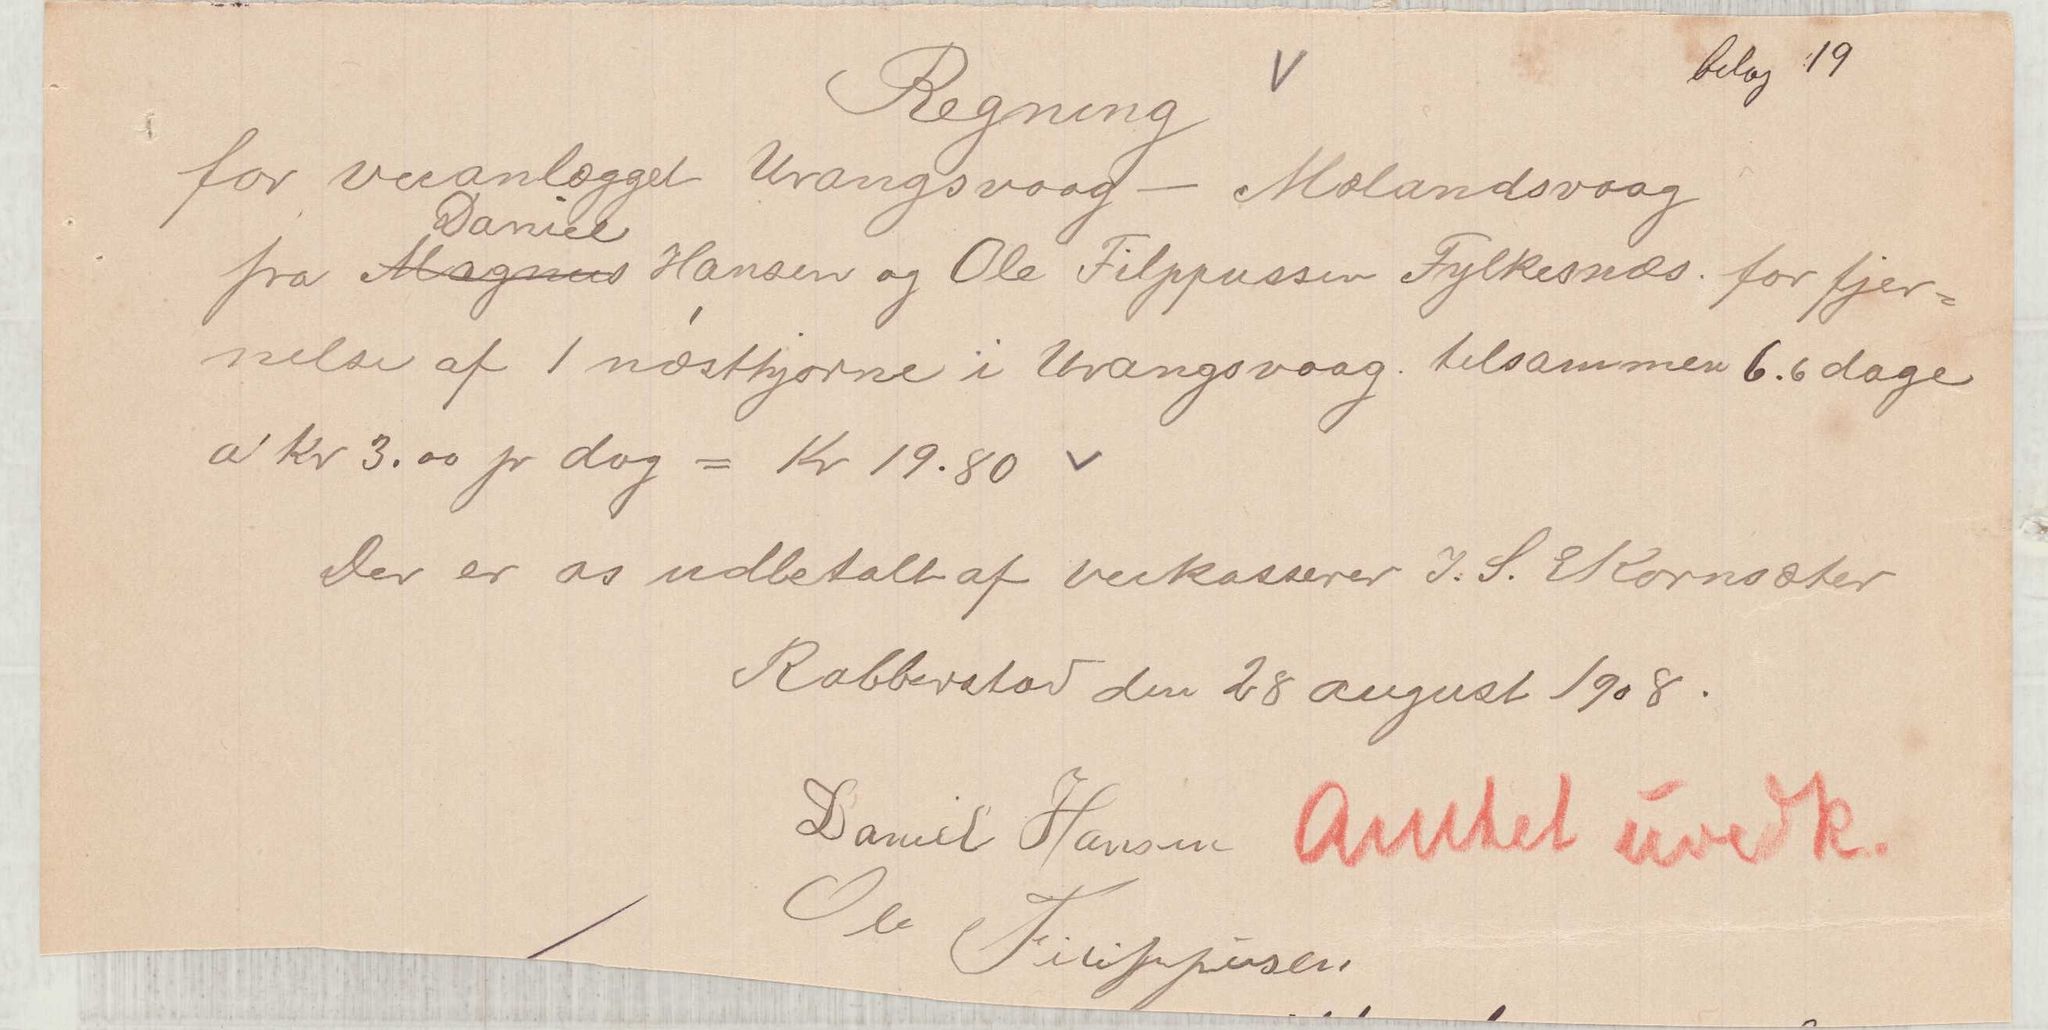 belag 19
Regning
for veianlægget Urangsvaag — Mælandsvaag
Daniel
fra Magnus Hansen og Ole Filppussen Fylkesnæs. for fjer=
nelse af 1 næsthjørne i Urangsvaag. tilsammen 6.6 dage
a' kr 3.00 pr dag = Kr 19.80
Der er os udbetalt af veikasserer J. S. Ekornsæter
Rabberstad den 28 august 1908.
Daniel Hansen
Amtet uvedk.
Ole
Filippusen